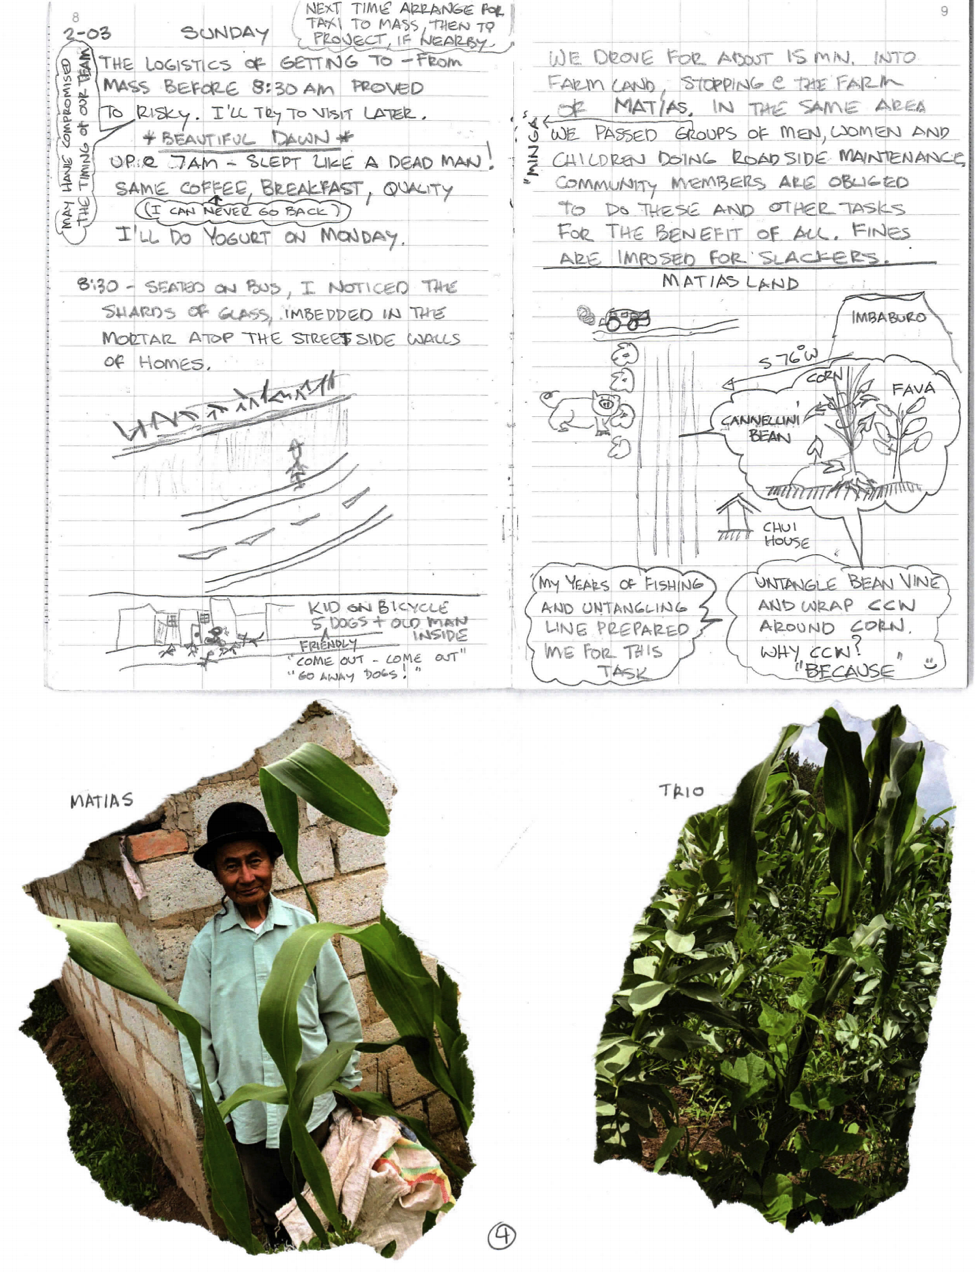 8
2-03 SUNDAY
NEXT TIME ARRANGE FOR
TAXI TO MASS, THEN TO
PROJECT, IF NEARBY
MAY HAVE COMPROMISED
THE TIMING OF OUR TEAM
THE LOGISTICS OF GETTING TO - FROM
MASS BEFORE 8:30 AM PROVED
TO RISKY. I'LL TRY TO VISIT LATER.
* BEAUTIFUL DAWN *
UP @ 7AM - SLEPT LIKE A DEAD MAN!
SAME COFFEE, BREAKFAST, QUALITY
(I CAN NEVER GO BACK)
I'LL DO YOGURT ON MONDAY.
8:30 - SEATED ON BUS, I NOTICED THE
SHARDS OF GLASS, IMBEDDED IN THE
MORTAR ATOP THE STREET SIDE WALLS
OF HOMES.
KID ON BICYCLE
5 DOGS + OLD MAN
INSIDE
FRIENDLY
"COME OUT - COME OUT"
"GO AWAY DOGS!"
9
WE DROVE FOR ABOUT 15 MN. INTO
FARM LAND, STOPPING @ THE FARM
OF MATIAS. IN THE SAME AREA
"MINGA"
WE PASSED GROUPS OF MEN, WOMEN AND
CHILDREN DOING ROADSIDE MAINTENANCE,
COMMUNITY MEMBERS ARE OBLIGED
TO DO THESE AND OTHER TASKS
FOR THE BENEFIT OF ALL. FINES
ARE IMPOSED FOR SLACKERS.
MATIAS LAND
IMBABURO
S 76° W
CORN
FAVA
CANNELLINI
BEAN
CHUI
HOUSE
MY YEARS OF FISHING
AND UNTANGLING
LINE PREPARED
ME FOR THIS
TASK
UNTANGLE BEAN VINE
AND WRAP CCW
AROUND CORN
WHY CCW?
"BECAUSE"
MATIAS
TRIO
4